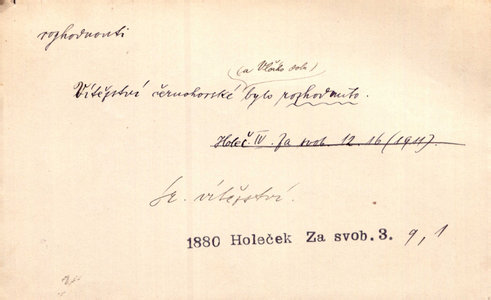 rozhodnouti
(a Vlčího dolu)
Vítězství černohorské bylo rozhodnuto.
Holeč. IV. Za svob. 12. 16 (1911).
vítězství.
1880 Holeček Za svob. 3. 9, 1